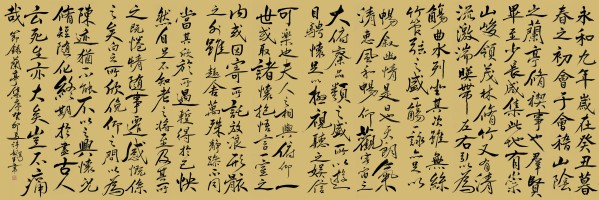 永和九年歲在癸丑暮
春之初會于會稽山陰
之蘭亭脩禊事也群賢
畢至少長咸集此地有崇
山峻領茂林脩竹又有清
流激湍暎帶左右引以為
觴曲水列坐其次雖無絲
竹管弦之盛一觴一詠亦足以
暢叙幽情是日也天朗氣
清惠風和暢仰觀宇宙之
大俯察品類之盛所以遊
目騁懷足以極視聽之娛信
可樂也夫人之相與俯仰一
世或取諸懷抱悟言一室之
内或因寄所託放浪形骸
之外雖趣舍萬殊静躁不同
當其欣於所遇暫得於己快
然自足不知老之將至及其所
之既惓情隨事遷感慨係
之矣向之所欣俛仰之間以為
陳迹猶不能不以之興懷况
脩短隨化終期於盡古人
云死生亦大矣豈不痛
哉
節錄蘭亭序